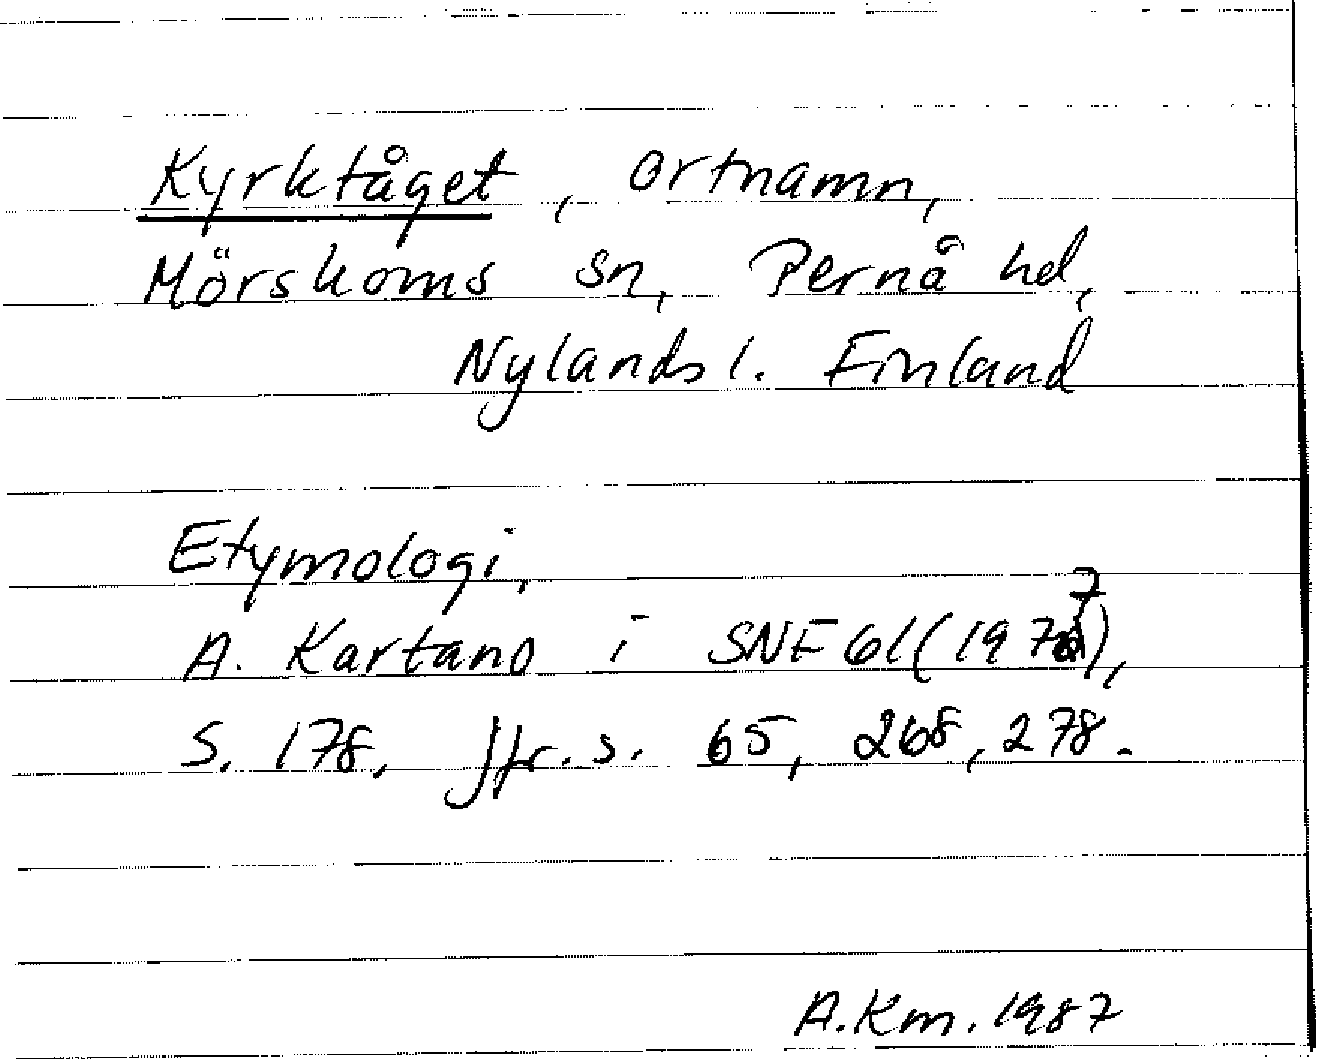 Kyrktåget, ortnamn,
Mörskoms sn, Pernå hd,
Nylands l. Finland
Etymologi,
A. Kartano i SNF 61 (1977),
S. 178, Jfr. s. 65, 268, 278.
A.Km. 1987